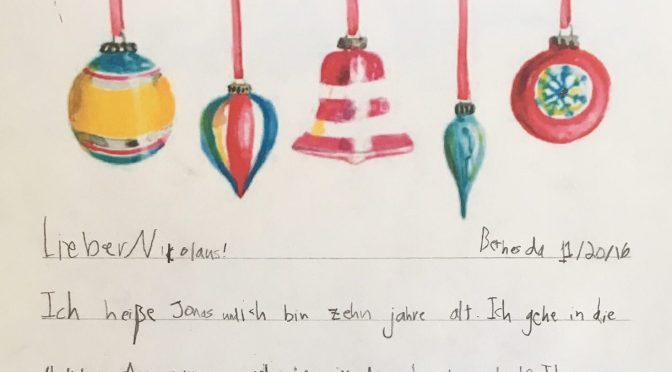 Lieber Nikolaus! Bethesda 11/20/16
Ich heiße Jonas und ich bin zehn jahre alt. Ich gehe in die